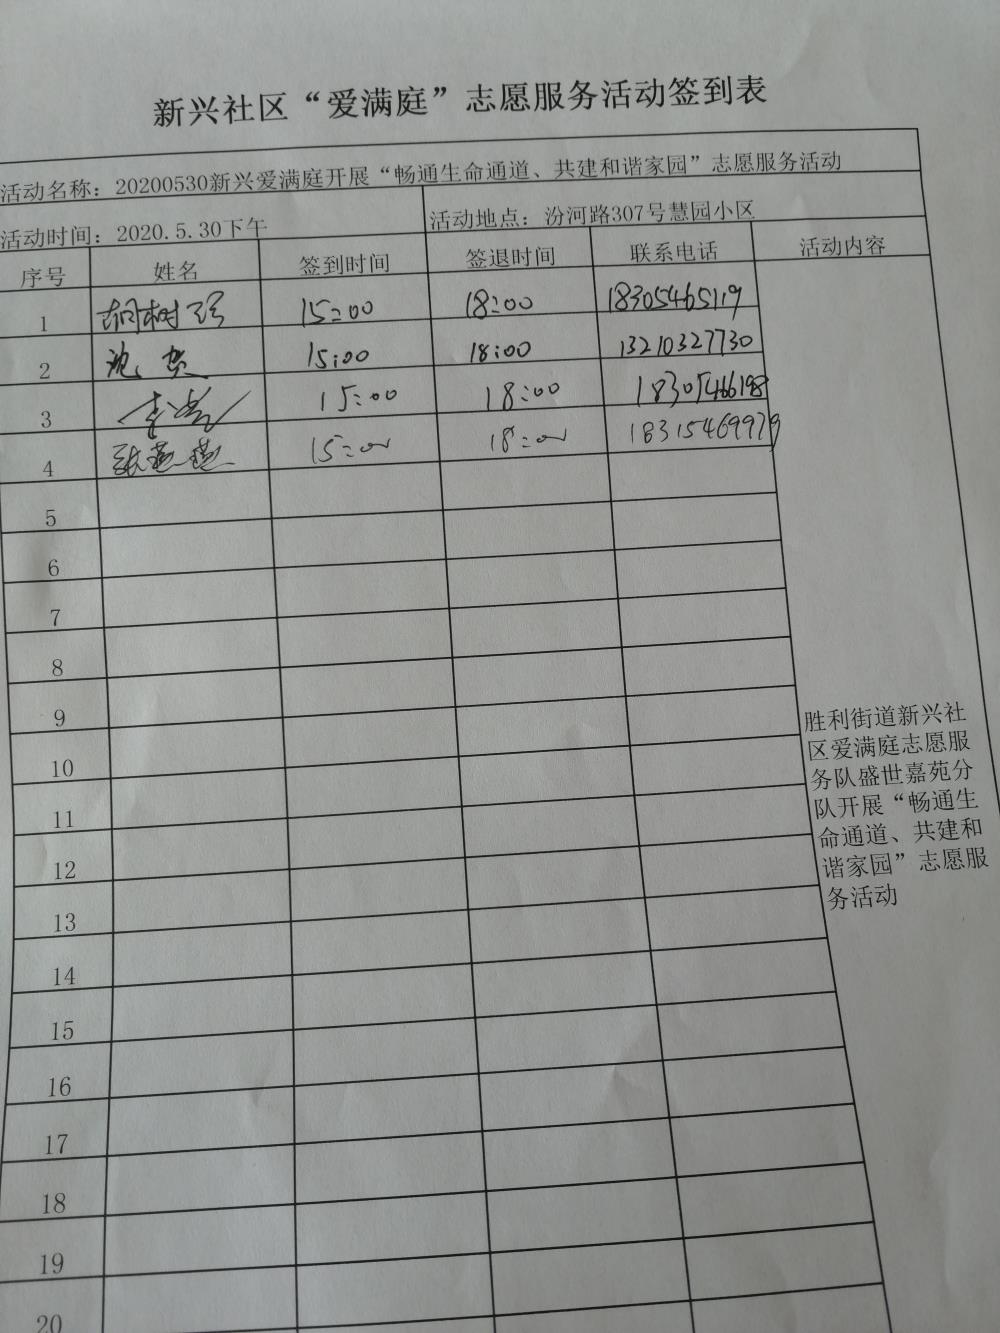 新兴社区“爱满庭”志愿服务活动签到表
活动名称：20200530新兴爱满庭开展“畅通生命通道、共建和谐家园”志愿服务活动
活动时间：2020.5.30下午 活动地点：汾河路307号慧园小区
序号 姓名 签到时间 签退时间 联系电话 活动内容
1 胡树 15:00 18:00 18305465119
2 15:00 18:00 13210327730
3 李 15:00 18:00 18305466198
4 张燕燕 15:00 18:00 18315469979
5
6
7
8
9
10
11
12
13
14
15
16
17
18
19
20
胜利街道新兴社
区爱满庭志愿服
务队盛世嘉苑分
队开展“畅通生
命通道、共建和
谐家园”志愿服
务活动